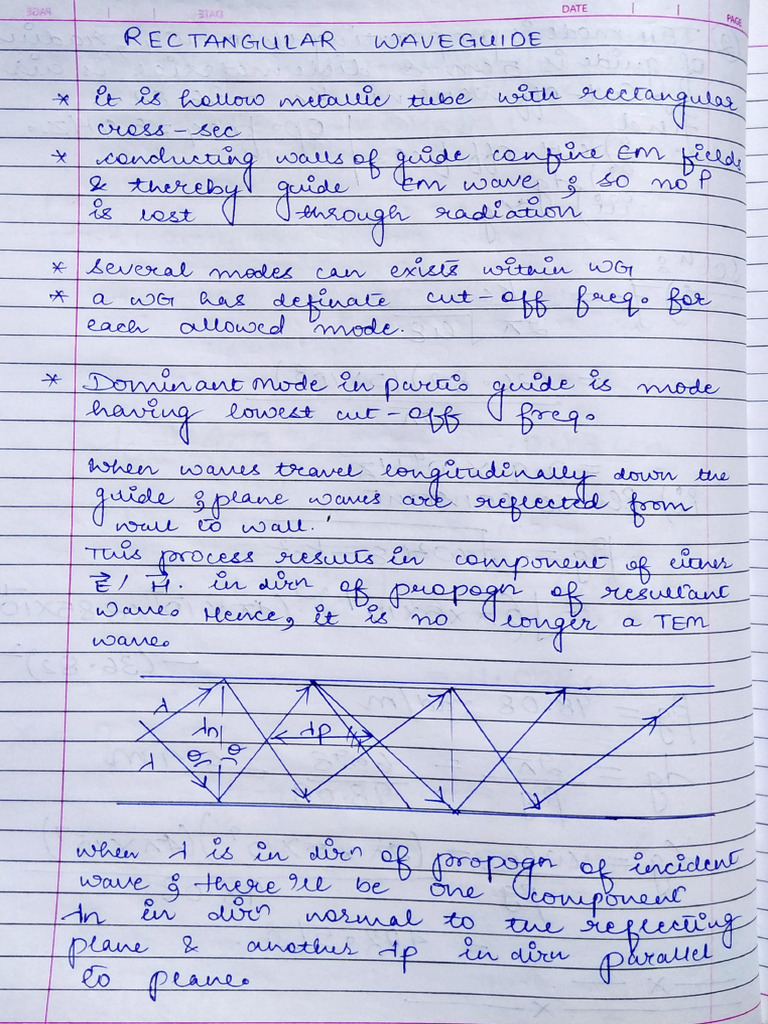 DATE
PAGE
RECTANGULAR WAVEGUIDE
* it is hollow metallic tube with rectangular
cross-sec
* conducting walls of guide confine EM fields
& thereby guide EM wave, so no P
is lost through radiation
* several modes can exists within WG
* a WG has definate cut-off freq. for
each allowed mode.
* Dominant Mode in partic guide is mode
having lowest cut-off freq.
When waves travel longitudinally down the
guide, plane waves are reflected from
wall to wall.
This process results in component of either
E / H. in dirn of propogn of resultant
wave. Hence, it is no longer a TEM
wave.
λ
λn
λp
θ θ
λ
when λ is in dirn of propogn of incident
wave, there'll be one component
λn in dirn normal to the reflecting
plane & another λp in dirn parallel
to plane.